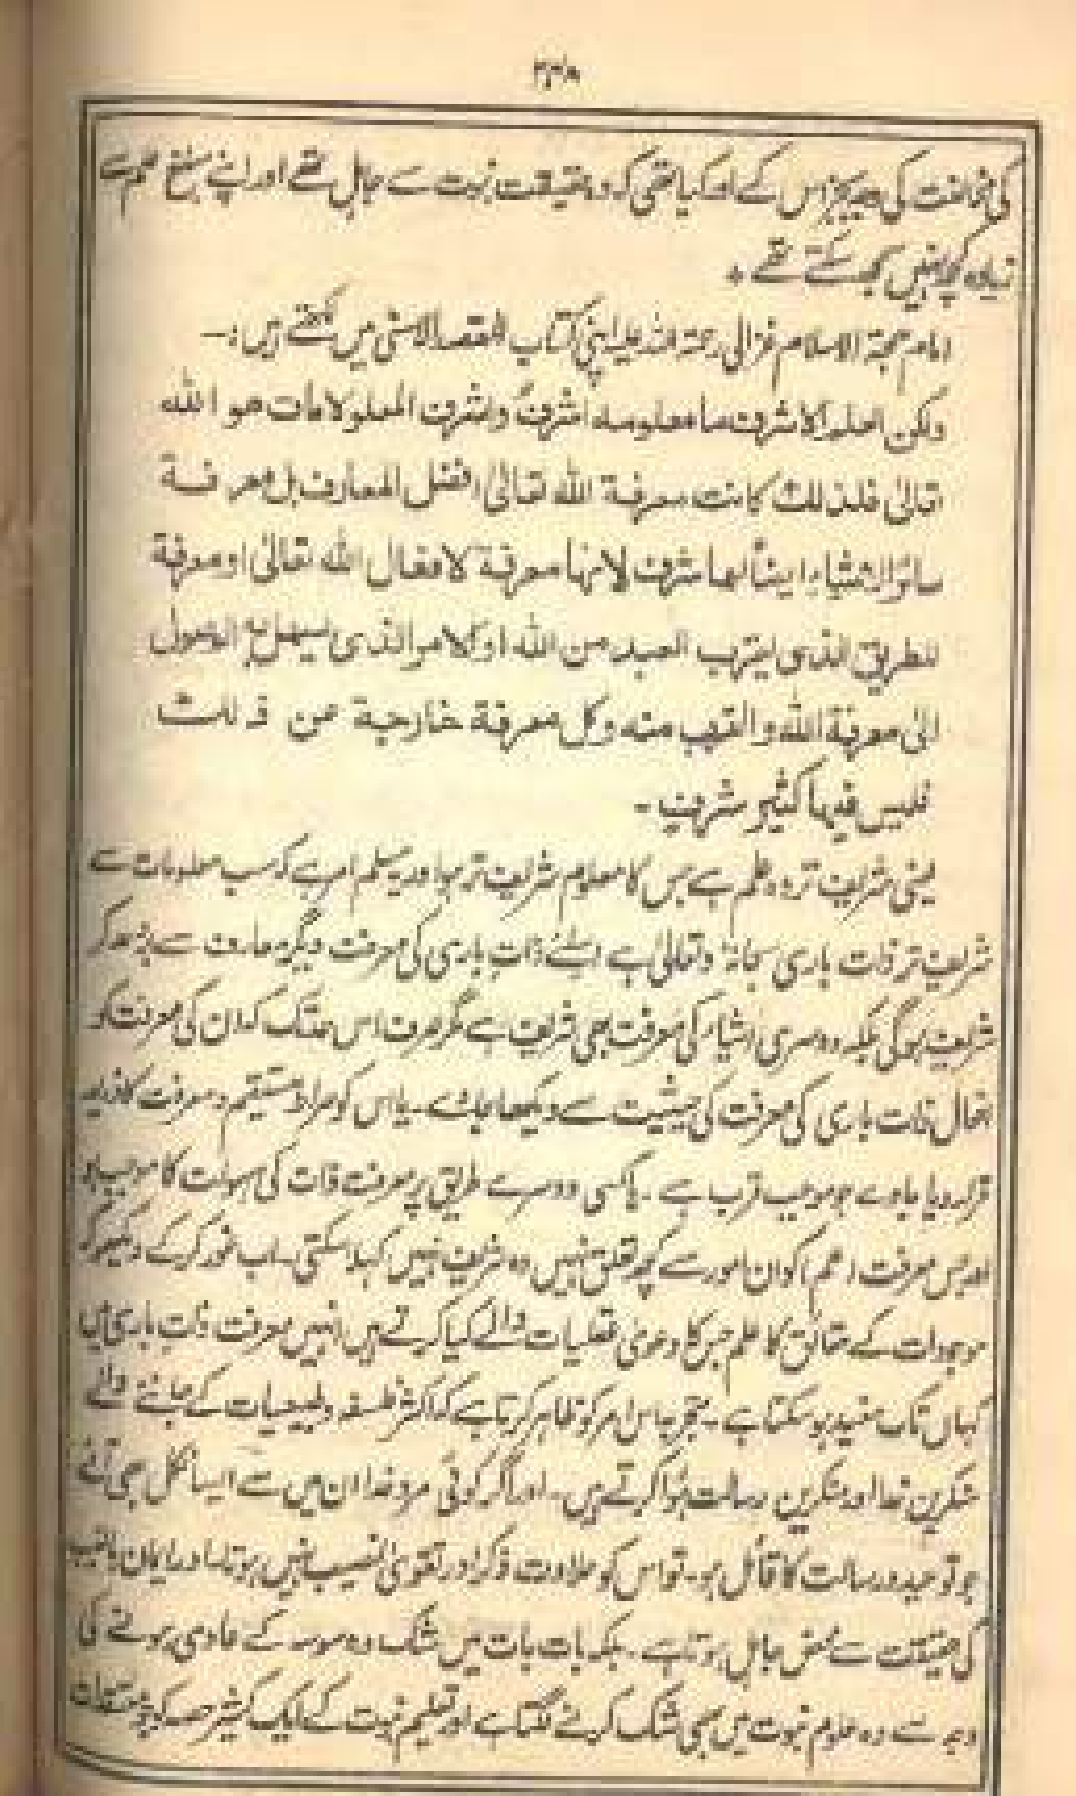 ۲۳۸
کی مخالفت کی وجہ بجز اس کے اور کیا تھی کہ وہ حقیقت نبوت سے جاہل تھے اور اپنے مبلغ علم سے
زیادہ کچھ نہیں سمجھ سکتے تھے ٭
امام حجۃ الاسلام غزالی رحمۃ اللہ علیہ اپنی کتاب المقصد الاسنیٰ میں لکھتے ہیں:۔
ولکن العلم الاشرف ما معلومہ اشرف واشرف المعلومات هو الله
تعالیٰ فلذلك کانت معرفة الله تعالیٰ افضل المعارف بل معرفة
سائر الاشیاء ایضاً انما شرف لانها معرفة لافعال الله تعالیٰ او معرفة
للطریق الذی یقرب العبد من الله او الامر الذی یسهل به الوصول
الیٰ معرفة الله والقرب منه وکل معرفة خارجة عن ذلك
فلیس فیها کثیر شرف ۔
یعنی شریف تر وہ علم ہے جس کا معلوم شریف تر ہو اور یہ مسلم امر ہے کہ سب معلومات سے
شریف تر ذات باری سبحانہٗ وتعالیٰ ہے اسلئے ذات باری کی معرفت دیگر معارف سے بڑھ کر
شریف ہوگی بلکہ دوسری اشیاء کی معرفت بھی شریف ہے مگر صرف اس حد تک کہ ان کی معرفت کو
افعال ذات باری کی معرفت کی حیثیت سے دیکھا جائے۔ یا اس کو صراط مستقیم و معرفت کا ذریعہ
قرار دیا جاوے جو موجب قرب ہے ۔ یا کسی دوسرے طریق پر معرفت ذات کی سہولت کا موجب ہو
اور جس معرفت (علم) کو ان امور سے کچھ تعلق نہیں وہ شریف نہیں کہلا سکتی۔ اب غور کرکے دیکھو کہ
موجودات کے حقائق کا علم جس کا دعویٰ عقلیات والے کیا کرتے ہیں انہیں معرفت ذات باری میں
کہاں تک مفید ہو سکتا ہے ۔ تجربہ اس امر کو ظاہر کرتا ہے کہ اکثر فلسفہ و طبیعیات کے جاننے والے
منکرین خدا اور منکرین رسالت ہوا کرتے ہیں۔ اور اگر کوئی مرد خدا ان میں سے ایسا نکل بھی آئے
جو توحید و رسالت کا قائل ہو۔ تو اس کو حلاوت ذکر اور تقویٰ نصیب نہیں ہوتا۔ اور ایمان بالغیب
کی حقیقت سے محض جاہل ہوتا ہے ۔ بلکہ بات بات میں شک و وسوسہ کے عادی ہونے کی
وجہ سے وہ علوم نبوت میں بھی شک کرنے لگتا ہے اور تعلیم نبوت کے ایک کثیر حصہ کو